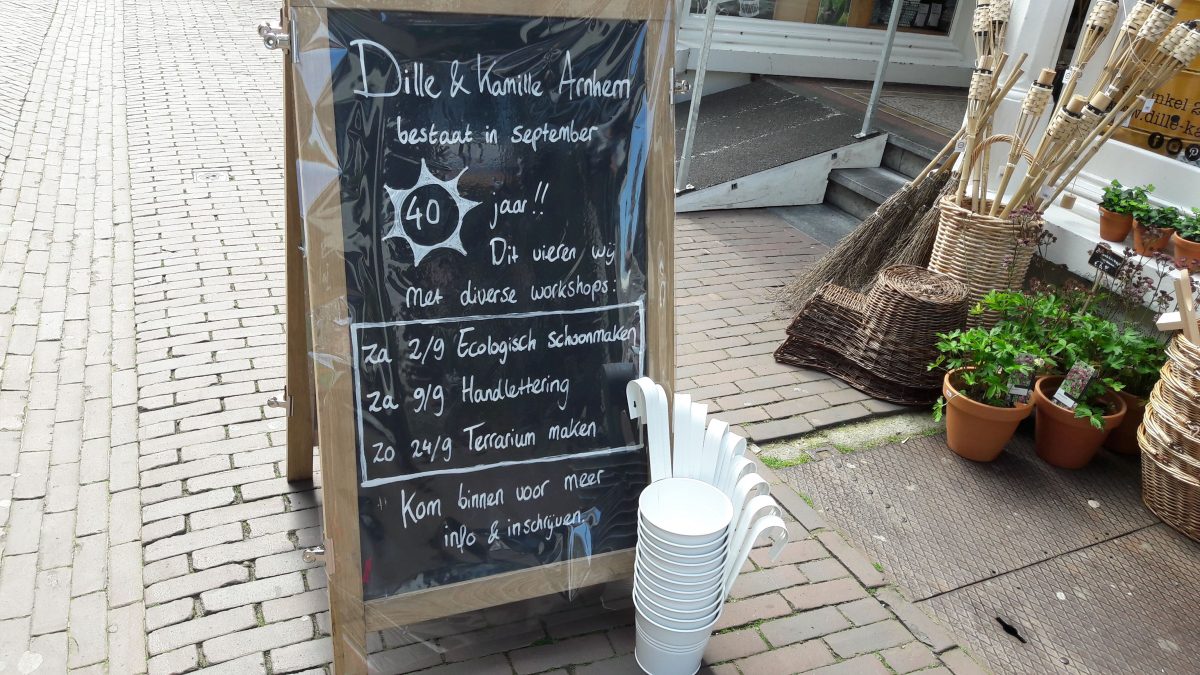 Dille & Kamille Arnhem
bestaat in september
40 jaar!!
Dit vieren wij
met diverse workshops:
Za 2/9 Ecologisch schoonmaken
Za 9/9 Handlettering
Zo 24/9 Terrarium maken
Kom binnen voor meer
info & inschrijven.